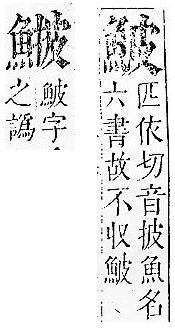 鮍
匹依切音披魚名
六書故不収鮍、
鮍字
之譌